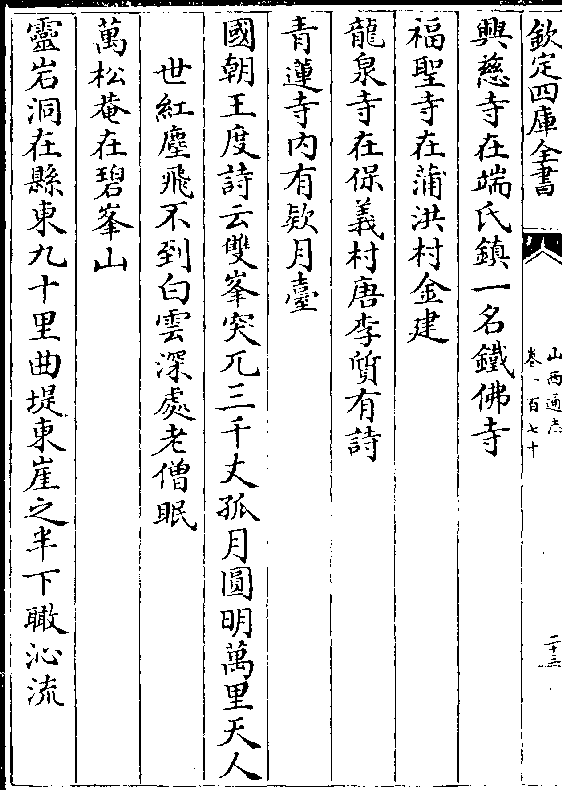 欽定四庫全書
山西通志
卷一百七十
二十三
興慈寺在端氏鎮一名鐵佛寺
福聖寺在蒲洪村金建
龍泉寺在保義村唐李質有詩
青蓮寺内有欵月臺
國朝王度詩云雙峯突兀三千丈孤月圓明萬里天人
世紅塵飛不到白雲深處老僧眠
萬松菴在碧峯山
靈岩洞在縣東九十里曲堤東崖之半下瞰沁流